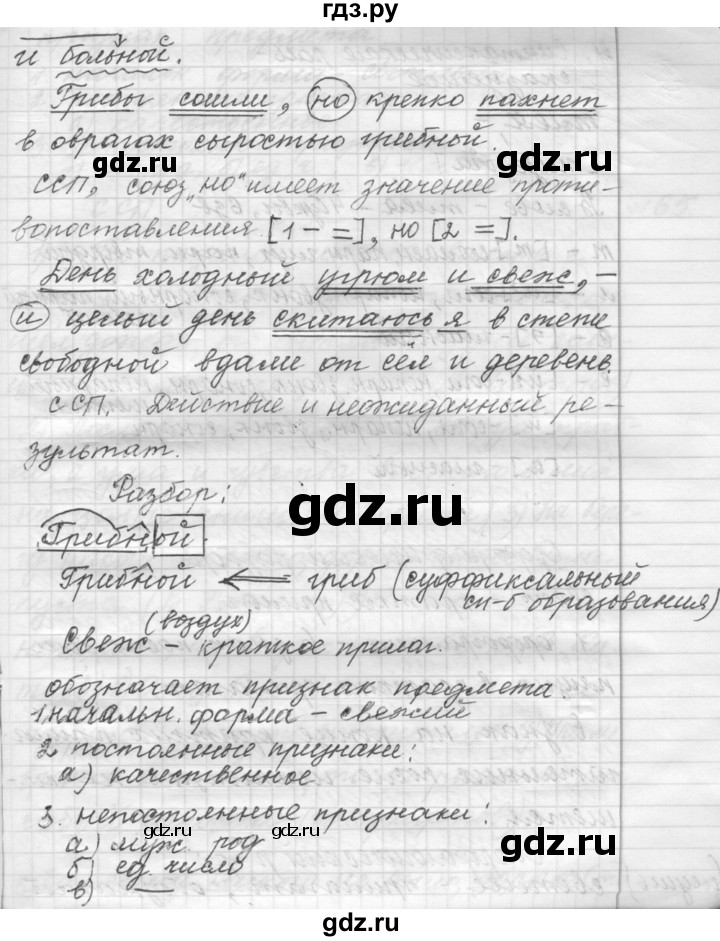 гдз.ру
и больной.
Грибы сошли, но крепко пахнет
в оврагах сыростью грибной.
ССП, союз „но" имеет значение проти-
вопоставления. [1 - =], но [2 =].
День холодный угрюм и свеж, -
и целый день скитаюсь я в степи
свободной вдали от сёл и деревень.
ССП. Действие и неожиданный ре-
зультат.
Разбор:
Грибной.
Грибной ⟸ гриб (суффиксальный
сп-б образования)
(воздух)
Свеж - краткое прилаг.
обозначает признак предмета.
1. начальн. форма - свежий
2 постоянные признаки:
а) качественное
3. непостоянные признаки:
а) муж. род
б) ед. число
в) —
gdz.ru
gdz.ru
gdz.ru
gdz.ru
gdz.ru
gdz.ru
gdz.ru
гдз.ру